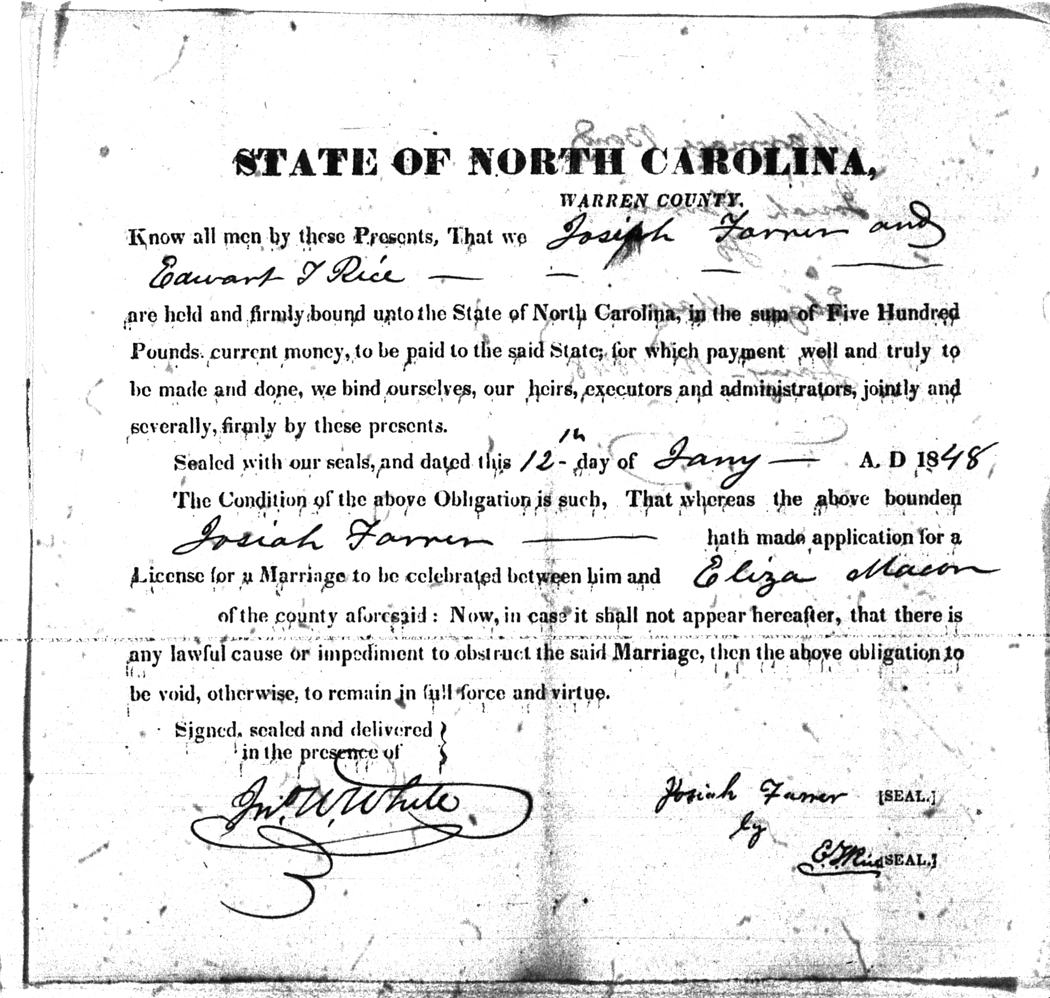 STATE OF NORTH CAROLINA,
WARREN COUNTY.
Know all men by these Presents, That we Josiah Farrer and
Edwart T Rice — — — —
are held and firmly bound unto the State of North Carolina, in the sum of Five Hundred
Pounds. current money, to be paid to the said State; for which payment well and truly to
be made and done, we bind ourselves, our heirs, executors and administrators, jointly and
severally, firmly by these presents.
Sealed with our seals, and dated this 12th day of Jany — A. D 1848
The Condition of the above Obligation is such, That whereas the above bounden
Josiah Farrer — hath made application for a
License for a Marriage to be celebrated between him and Eliza Macon
of the county aforesaid: Now, in case it shall not appear hereafter, that there is
any lawful cause or impediment to obstruct the said Marriage, then the above obligation to
be void, otherwise, to remain in full force and virtue.
Signed, sealed and delivered }
in the presence of
Jno. W. White
Josiah Farrer [SEAL.]
by
E. T. Rice [SEAL.]